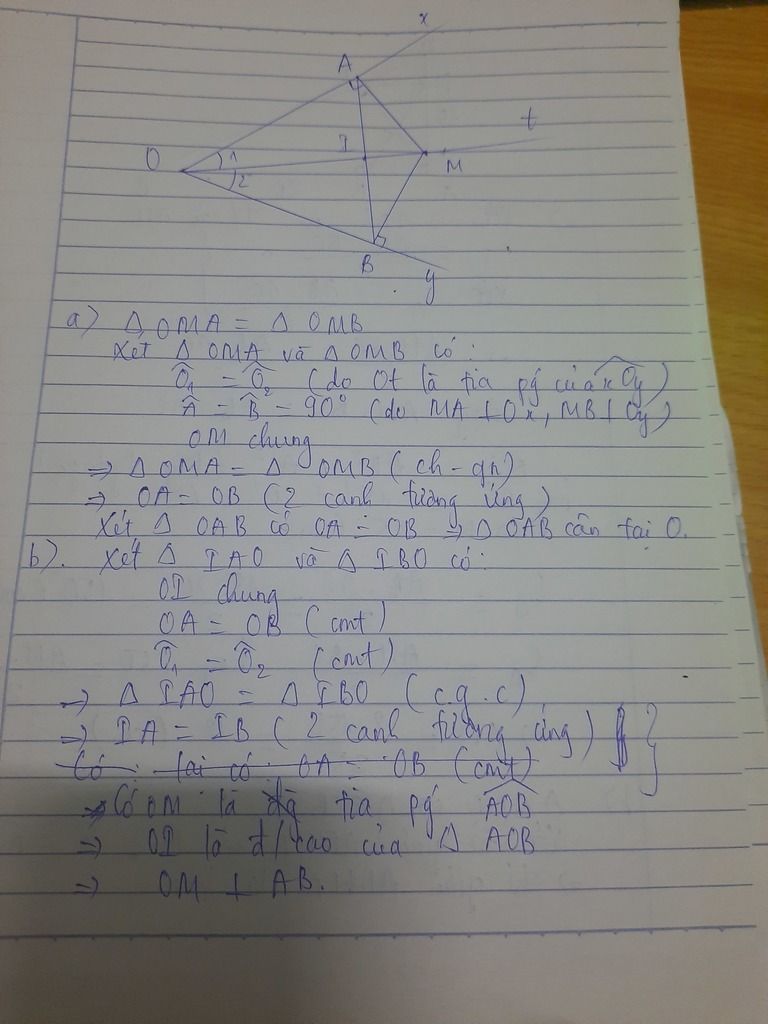 x
A
t
I
O
1
M
2
B
y
a) Δ OMA = Δ OMB
Xét Δ OMA và Δ OMB có:
Ô₁ = Ô₂ (do Ot là tia pg của xOy)
Â = B̂ = 90° (do MA ⊥ Ox, MB ⊥ Oy)
OM chung
=> Δ OMA = Δ OMB (ch - gn)
=> OA = OB (2 cạnh tương ứng)
Xét Δ OAB có OA = OB => Δ OAB cân tại O.
b). Xét Δ IAO và Δ IBO có:
OI chung
OA = OB (cmt)
Ô₁ = Ô₂ (cmt)
=> Δ IAO = Δ IBO (c.g.c)
=> IA = IB (2 cạnh tương ứng) }
Có lại có OA = OB (cmt)
Có OM là tia pg AOB
=> OI là đ/cao của Δ AOB
=> OM ⊥ AB.